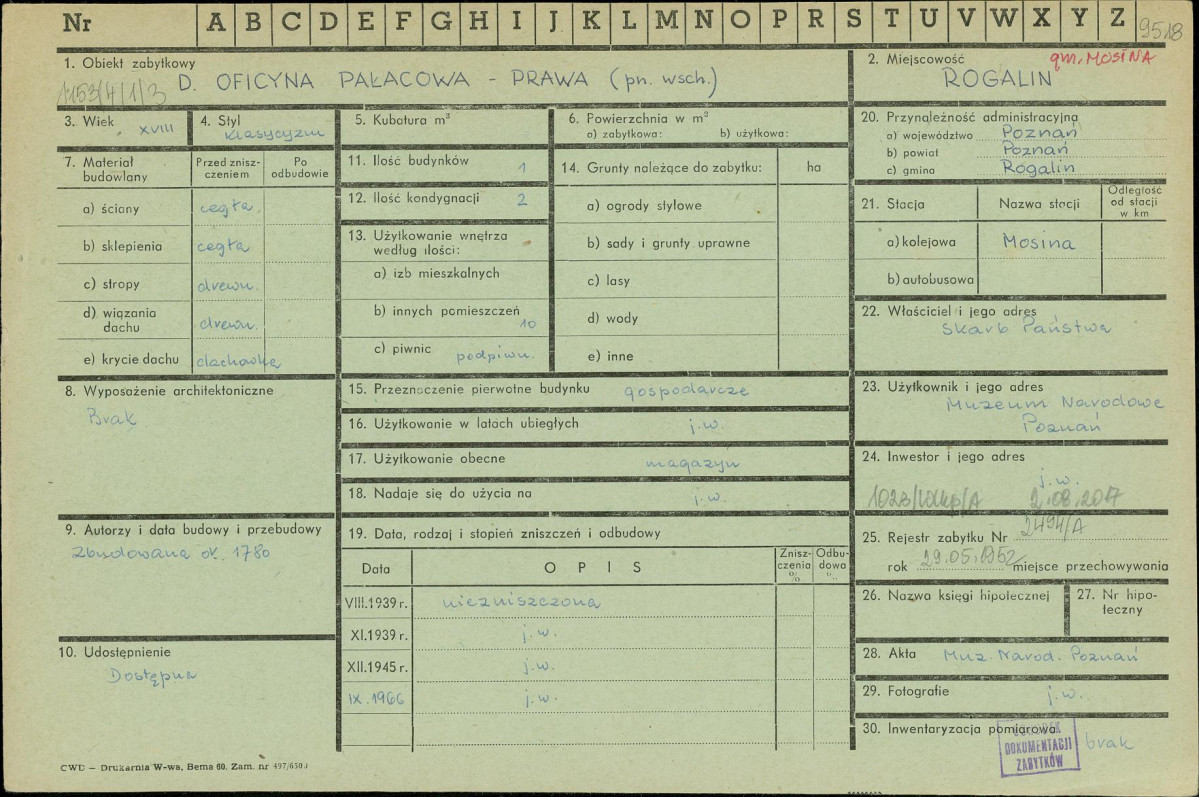 Nr A B C D E F G H I J K L M N O P R S T U V W X Y Z 9518
1. Obiekt zabytkowy
D. OFICYNA PAŁACOWA - PRAWA (pn. wsch.)
2. Miejscowość gm. MOSINA
ROGALIN
3. Wiek XVIII
4. Styl klasycyzm
5. Kubatura m³
6. Powierzchnia w m²
a) zabytkowa: b) użytkowa:
20. Przynależność administracyjna
a) województwo Poznań
b) powiat Poznań
c) gmina Rogalin
7. Materiał budowlany
Przed zniszczeniem
Po odbudowie
a) ściany cegła
b) sklepienia cegła
c) stropy drewn.
d) wiązania dachu drewn.
e) krycie dachu dachówka
11. Ilość budynków 1
12. Ilość kondygnacji 2
13. Użytkowanie wnętrza
według ilości:
a) izb mieszkalnych
b) innych pomieszczeń 10
c) piwnic podpiwn.
14. Grunty należące do zabytku: ha
a) ogrody stylowe
b) sady i grunty uprawne
c) lasy
d) wody
e) inne
21. Stacja
Nazwa stacji
Odległość
od stacji
w km
a) kolejowa Mosina
b) autobusowa
22. Właściciel i jego adres
Skarb Państwa
8. Wyposażenie architektoniczne
Brak
15. Przeznaczenie pierwotne budynku gospodarcze
16. Użytkowanie w latach ubiegłych j.w.
17. Użytkowanie obecne magazyn
18. Nadaje się do użycia na j.w.
23. Użytkownik i jego adres
Muzeum Narodowe
Poznań
24. Inwestor i jego adres
j.w.
1023/Wlkp/A 2.08.2017
9. Autorzy i data budowy i przebudowy
Zbudowana ok. 1780
19. Data, rodzaj i stopień zniszczeń i odbudowy
Data
O P I S
Zniszczenia %
Odbudowa
VIII.1939 r. niezniszczona
XI.1939 r. j.w.
XII.1945 r. j.w.
IX.1966 j.w.
25. Rejestr zabytku Nr 2494/A
rok 29.05.1952 miejsce przechowywania
26. Nazwa księgi hipotecznej
27. Nr hipoteczny
10. Udostępnienie
Dostępna
28. Akta Muz. Narod. Poznań
29. Fotografie j.w.
30. Inwentaryzacja pomiarowa
brak
OŚRODEK
DOKUMENTACJI
ZABYTKÓW
CWD – Drukarnia W-wa, Bema 60. Zam. nr